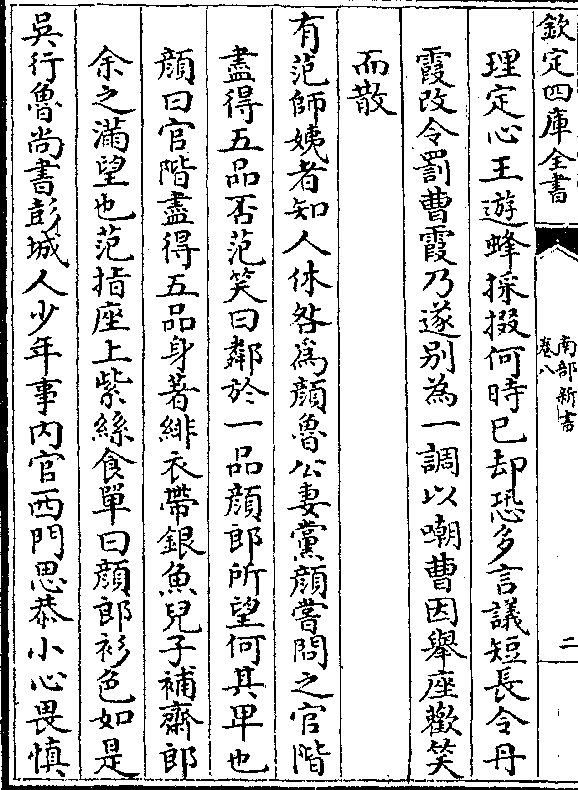 欽定四庫全書
南部新書
卷八
二
理定心王遊蜂採掇何時已却恐多言議短長令丹
霞改令罰曹霞乃遂别為一調以嘲曹因舉座歡笑
而散
有范師姨者知人休咎為顔魯公妻黨顔嘗問之官階
盡得五品否范笑曰鄰於一品顔郎所望何其卑也
顔曰官階盡得五品身著緋衣帶銀魚兒子補齋郎
余之滿望也范指座上紫絲食單曰顔郎衫色如是
吳行魯尚書彭城人少年事内官西門思恭小心畏慎